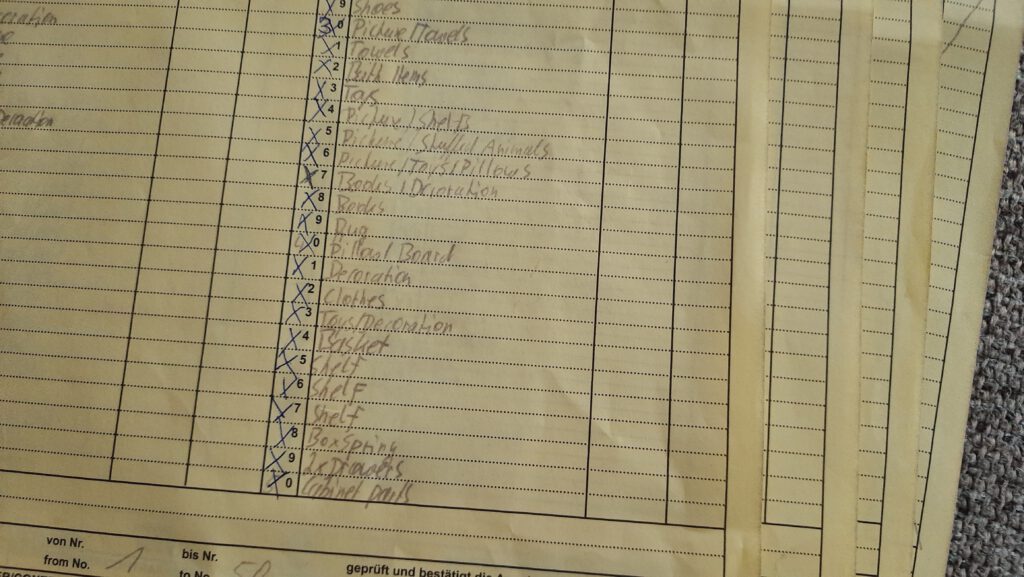 9 Shoes
30 Picture/Towels
1 Towels
2 Bath Items
3 Toys
4 Picture/Shelfs
5 Picture/Stuffed Animals
6 Picture/Toys/Pillows
7 Books/Decoration
8 Books
9 Rug
40 Board
1 Decoration
2 Clothes
3 Toys/Decoration
4 Basket
5 Shelf
6 Shelf
7 Shelf
8 Boxspring
9 2x Drawers
0 Cabinet parts
von Nr.
from No. 1
bis Nr.
to No. 50
geprüft und bestätigt die